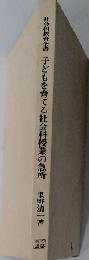 社会科教育全書
子どもを育てる社会科授業の急所
星野清一著